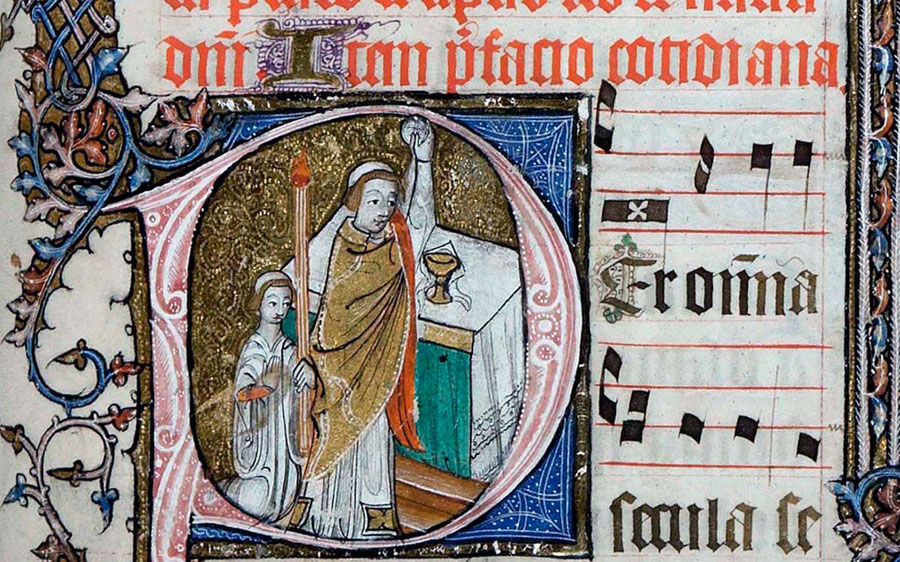 dn̄i Item p̄facio cotidiana.
PEr om̄ia
secula se